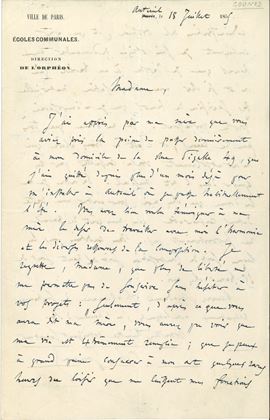 GOUNOD
VILLE DE PARIS.
ÉCOLES COMMUNALES.
DIRECTION
DE L'ORPHÉON
Auteuil
Paris, le 18 Juillet 185
Madame,
J'ai appris, par ma mère que vous
aviez pris la peine de passer dernièrement
à mon domicile de la rue Pigalle, que
j'ai quitté depuis plus d'un mois déjà pour
m'installer à Auteuil où je passe habituellement
l'été. Vous avez bien voulu témoigner à ma
mère le désir de travailler avec moi l'harmonie
et les diverses ressources de la composition. Je
regrette, Madame, que plus de liberté ne
me permette pas de souscrire sans hésitation à
vos projets : justement, d'après ce que vous
aura dit ma mère, vous avez pu voir que
ma vie est extrêmement remplie ; que je peux
à grand peine consacrer à mon art quelques rares
heures de loisir que me laissent mes fonctions